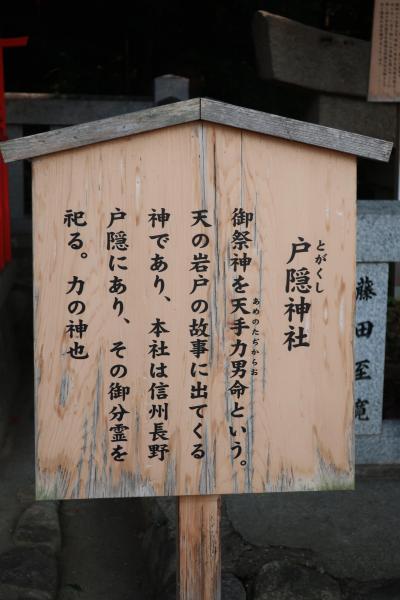 とがくし
戸隠神社
御祭神を天手力男命という。
あめのたぢからお
天の岩戸の故事に出てくる
神であり、本社は信州長野
戸隠にあり、その御分霊を
祀る。力の神也
藤田至寛